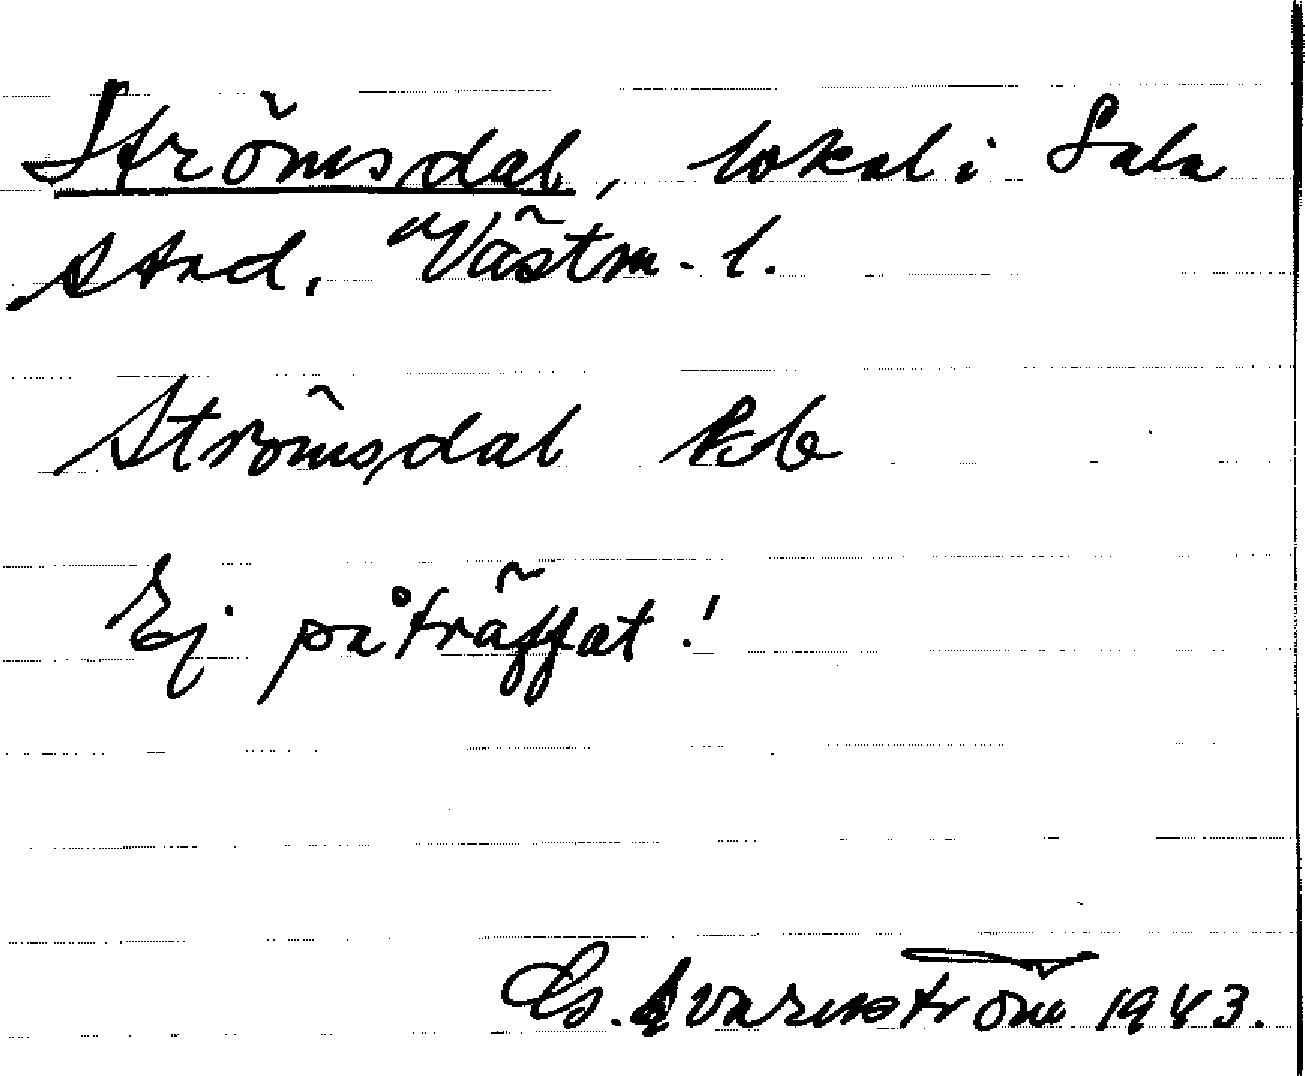 Strömsdal, lokal i Sala
stad, Västm. l.
Strömsdal ksb
Ej påträffat!
G. Qvarnström 1943.